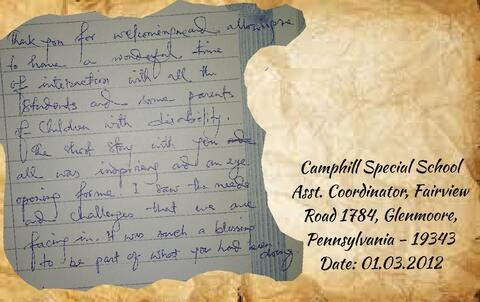 Thank you for welcoming me and allowing me
to have a wonderful time
of interaction with all the
students and some parents
of children with disability.
The short stay with you
all was inspiring and an eye
opening for me. I saw the needs
and challenges that we are
facing in. It was such a blessing
to be part of what you had been doing
Camphill Special School
Asst. Coordinator, Fairview
Road 1784, Glenmoore,
Pennsylvania - 19343
Date: 01.03.2012